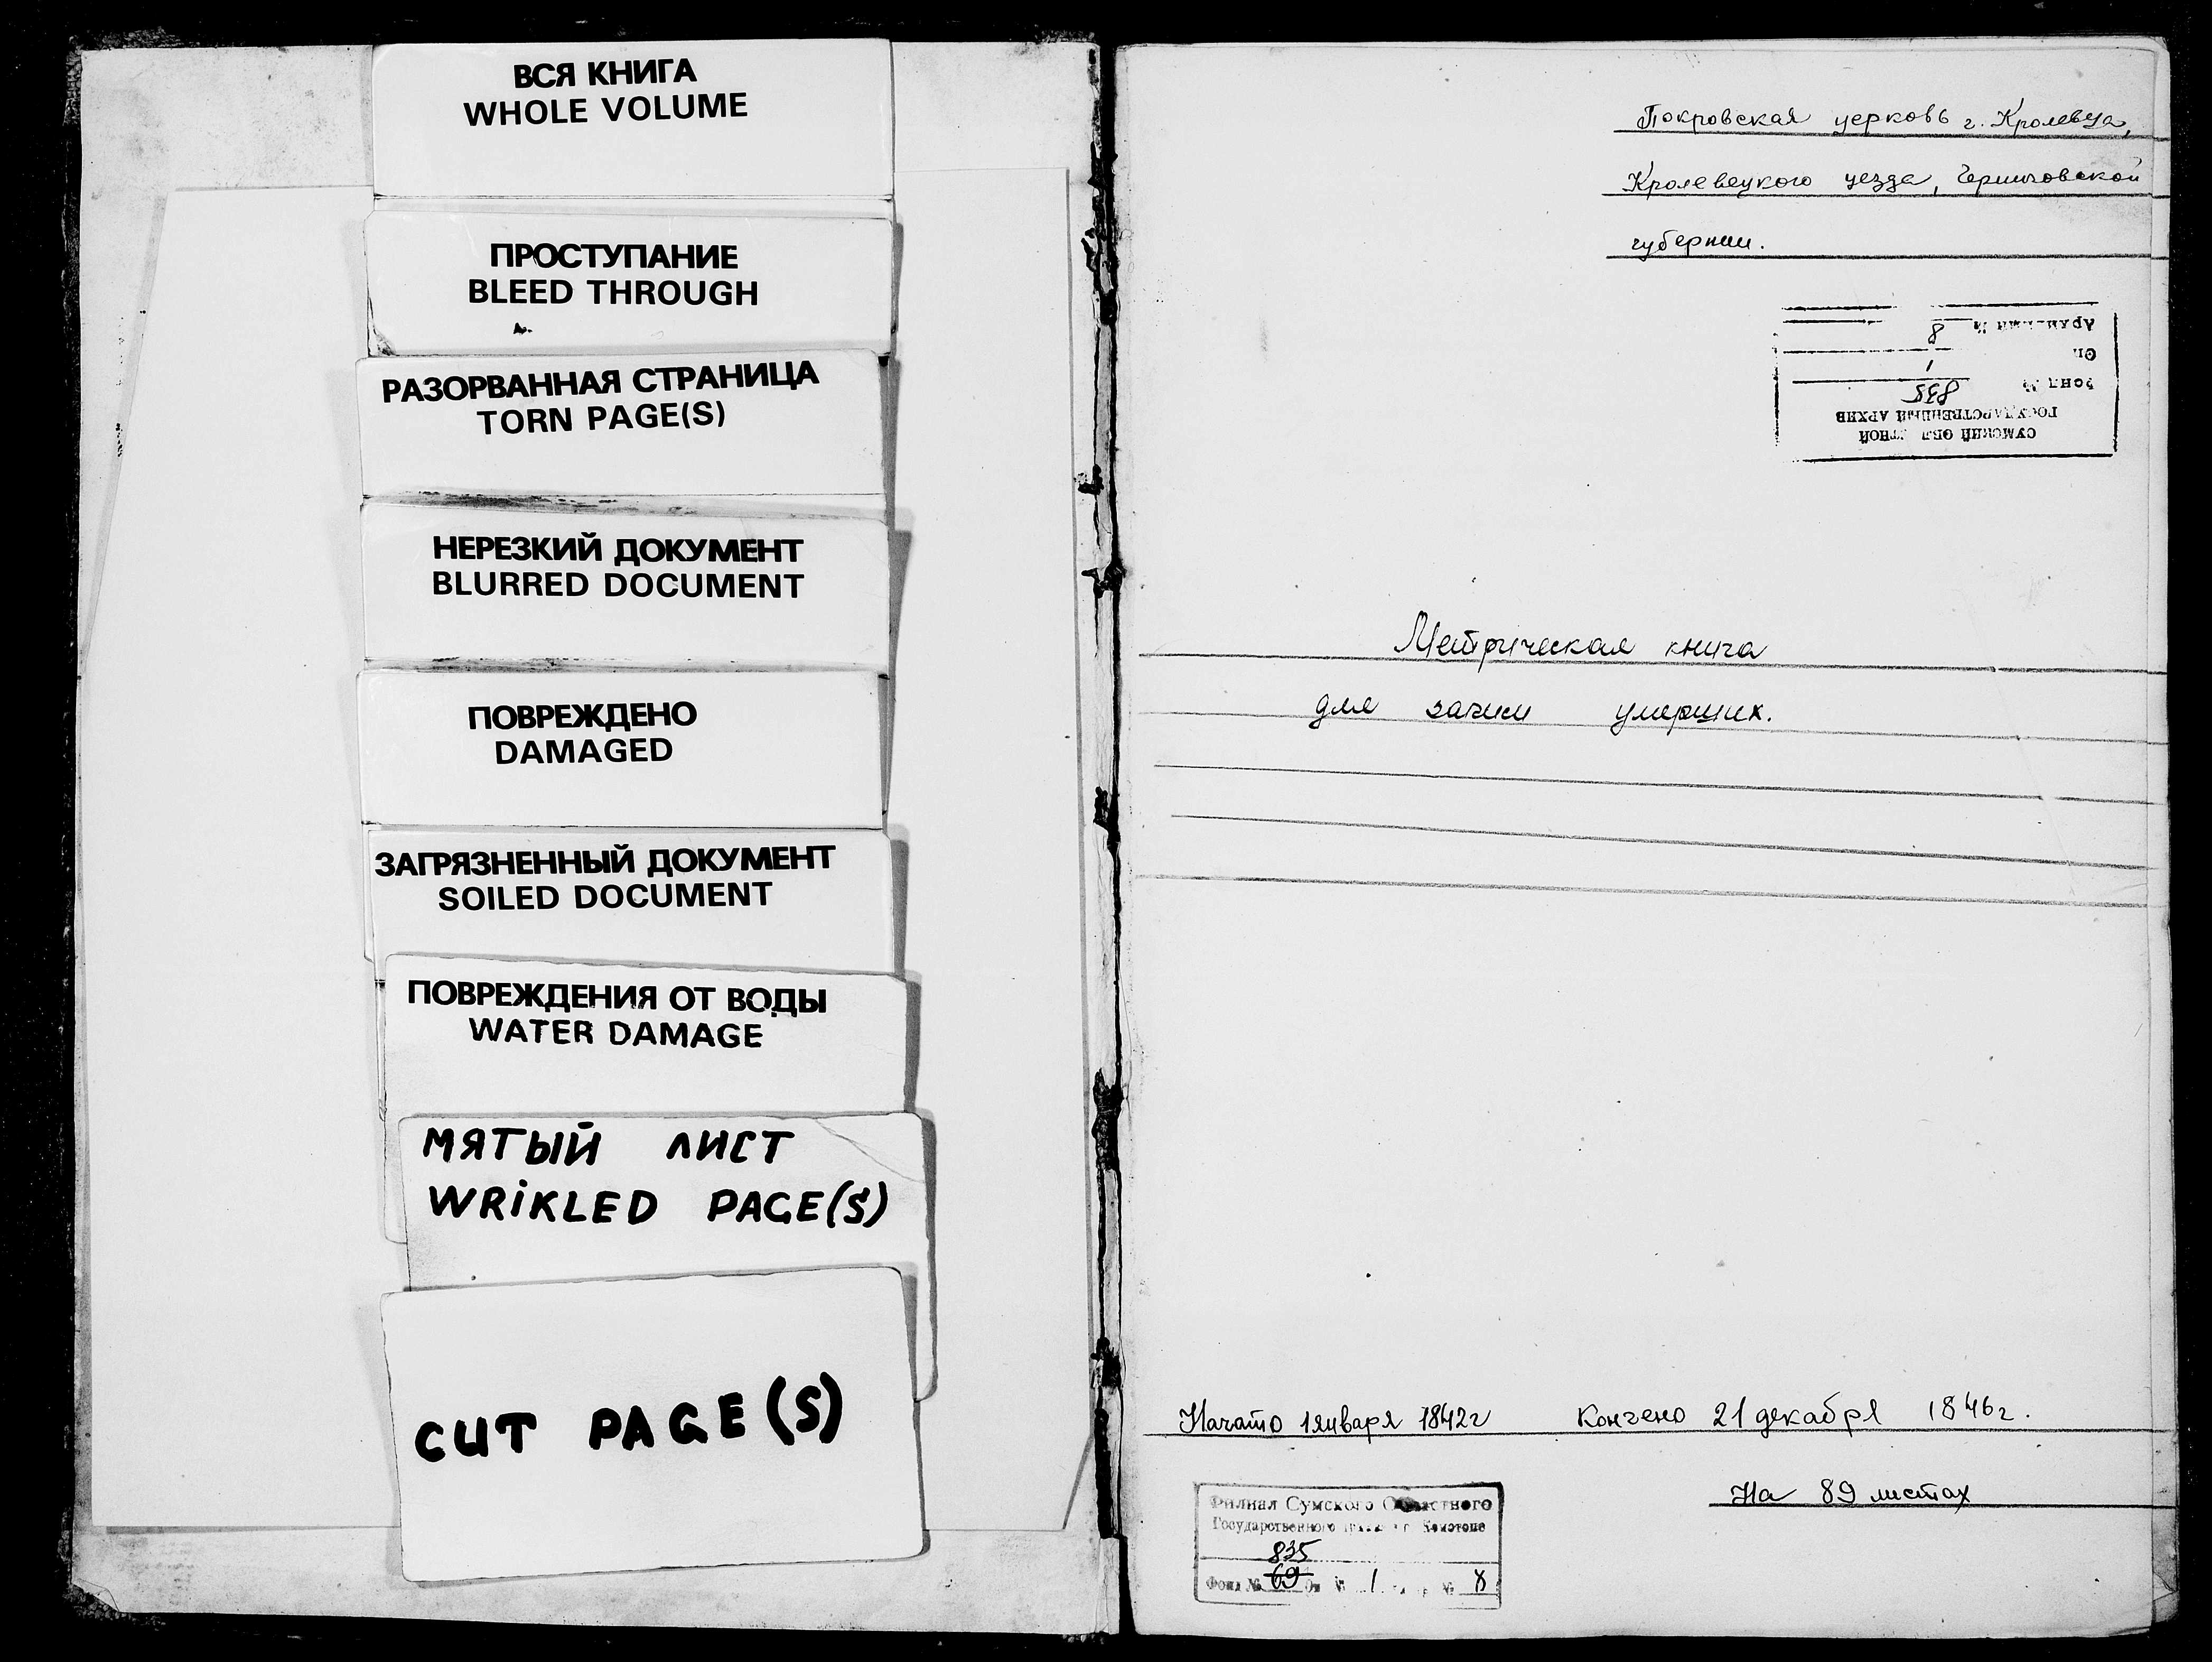 ВСЯ КНИГА
WHOLE VOLUME
ПРОСТУПАНИЕ
BLEED THROUGH
РАЗОРВАННАЯ СТРАНИЦА
TORN PAGE(S)
НЕРЕЗКИЙ ДОКУМЕНТ
BLURRED DOCUMENT
ПОВРЕЖДЕНО
DAMAGED
ЗАГРЯЗНЕННЫЙ ДОКУМЕНТ
SOILED DOCUMENT
ПОВРЕЖДЕНИЯ ОТ ВОДЫ
WATER DAMAGE
МЯТЫЙ ЛИСТ
WRIKLED PAGE(S)
CUT PAGE(S)
Покровская церковь г. Кролевца,
Кролевецкого уезда, Черниговской
губернии.
СУМСКИЙ
ГОСУДАРСТВЕННЫЙ АРХИВ
Фонд № 835
Оп 1
8
Метрическая книга
для записи умерших.
Начато 1 января 1842г Кончено 21 декабря 1846г.
На 89 листах
Филиал Сумского Областного
Государственного Конотопе
835
Фонд № 69 Оп 1 № 8